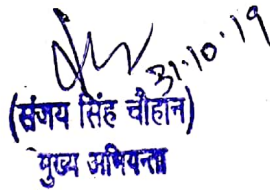 31.10.19
(संजय सिंह चौहान)
मुख्य अभियन्ता